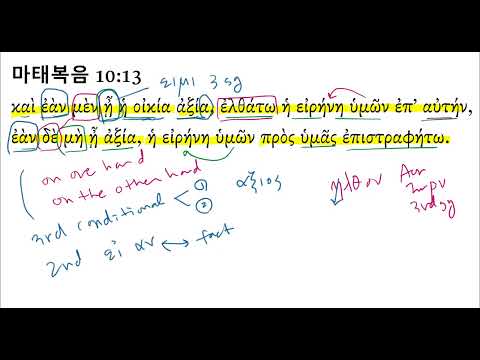 마태복음 10:13
ειμι 3 sg
καὶ ἐὰν μὲν ᾖ ἡ οἰκία ἀξία, ἐλθάτω ἡ εἰρήνη ὑμῶν ἐπ' αὐτήν,
ἐὰν δὲ μὴ ᾖ ἀξία, ἡ εἰρήνη ὑμῶν πρὸς ὑμᾶς ἐπιστραφήτω.
on one hand
on the other hand
3rd conditional < ① ②
αξιος
ηλθον Aor
Impv
3rd sg
2nd εἰ αν ↔ fact